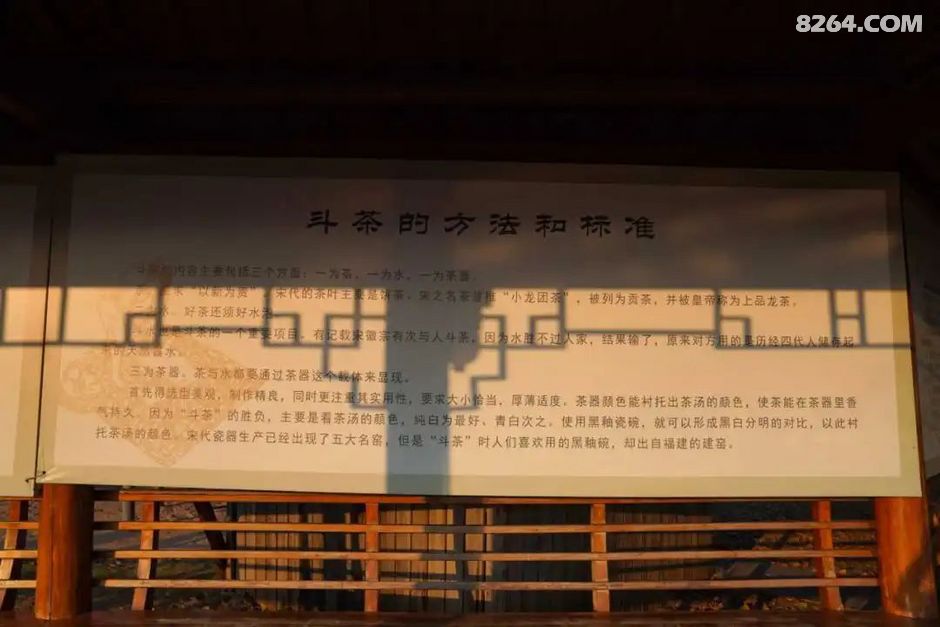 8264.COM
斗茶的方法和标准
斗茶的内容主要包括三个方面：一为茶、一为水、一为茶器。
“以新为贵” 宋代的茶叶主要是饼茶。宋之名茶首推“小龙团茶”，被列为贡茶，并被皇帝称为上品龙茶。
二为水。好茶还须好水泡。
斗水也是斗茶的一个重要项目。有记载宋徽宗有次与人斗茶，因为水胜不过人家，结果输了，原来对方用的是历经四代人储存起
来的天然露水。
三为茶器。茶与水都要通过茶器这个载体来显现。
首先得造型美观，制作精良，同时更注重其实用性，要求大小恰当、厚薄适度。茶器颜色能衬托出茶汤的颜色，使茶能在茶器里香
气持久。因为“斗茶”的胜负，主要是看茶汤的颜色，纯白为最好、青白次之。使用黑釉瓷碗，就可以形成黑白分明的对比，以此衬
托茶汤的颜色。宋代瓷器生产已经出现了五大名窑，但是“斗茶”时人们喜欢用的黑釉碗，却出自福建的建窑。